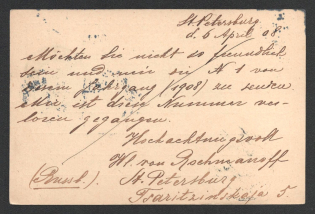 St. Petersburg
d. 6 April 08.
Möchten Sie nicht so freundlich
sein und mir die N 1 von
diesem Jahrgang (1908) zu senden
Mir ist diese Nummer ver-
loren gegangen.
Hochachtungsvoll
W. von Bochmanoff
(Russl.). St. Petersburg
Tsaritzinskaja 5.